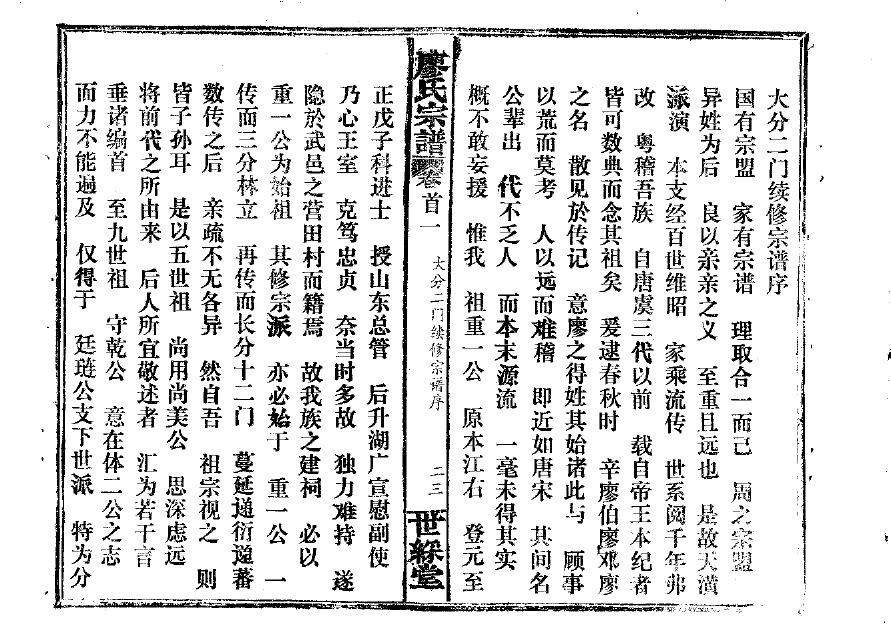 大分二门续修宗谱序
国有宗盟　家有宗谱　理取合一而已　周之宗盟
异姓为后　良以亲亲之义　至重且远也　是故天潢
派演　本支经百世维昭　家乘流传　世系阅千年弗
改　粤稽吾族　自唐虞三代以前　载自帝王本纪者
皆可数典而念其祖矣　爰逮春秋时　辛廖伯廖邓廖
之名　散见於传记　意廖之得姓其始诸此与　顾事
以荒而莫考　人以远而难稽　即近如唐宋　其间名
公辈出　代不乏人　而本末源流　一毫未得其实
概不敢妄援　惟我　祖重一公　原本江右　登元至
廖氏宗譜　卷首一　大分二门续修宗谱序　二三　世綵堂
正戊子科进士　授山东总管　后升湖广宣慰副使
乃心王室　克笃忠贞　奈当时多故　独力难持　遂
隐於武邑之营田村而籍焉　故我族之建祠　必以
重一公为始祖　其修宗派　亦必始于　重一公　一
传而三分林立　再传而长分十二门　蔓延递衍　蕃
数传之后　亲疏不无各异　然自吾　祖宗视之　则
皆子孙耳　是以五世祖　尚用尚美公　思深虑远
将前代之所由来　后人所宜敬述者　汇为若干言
垂诸编首　至九世祖　守乾公　意在体二公之志
而力不能遍及　仅得于　廷琏公支下世派　特为分